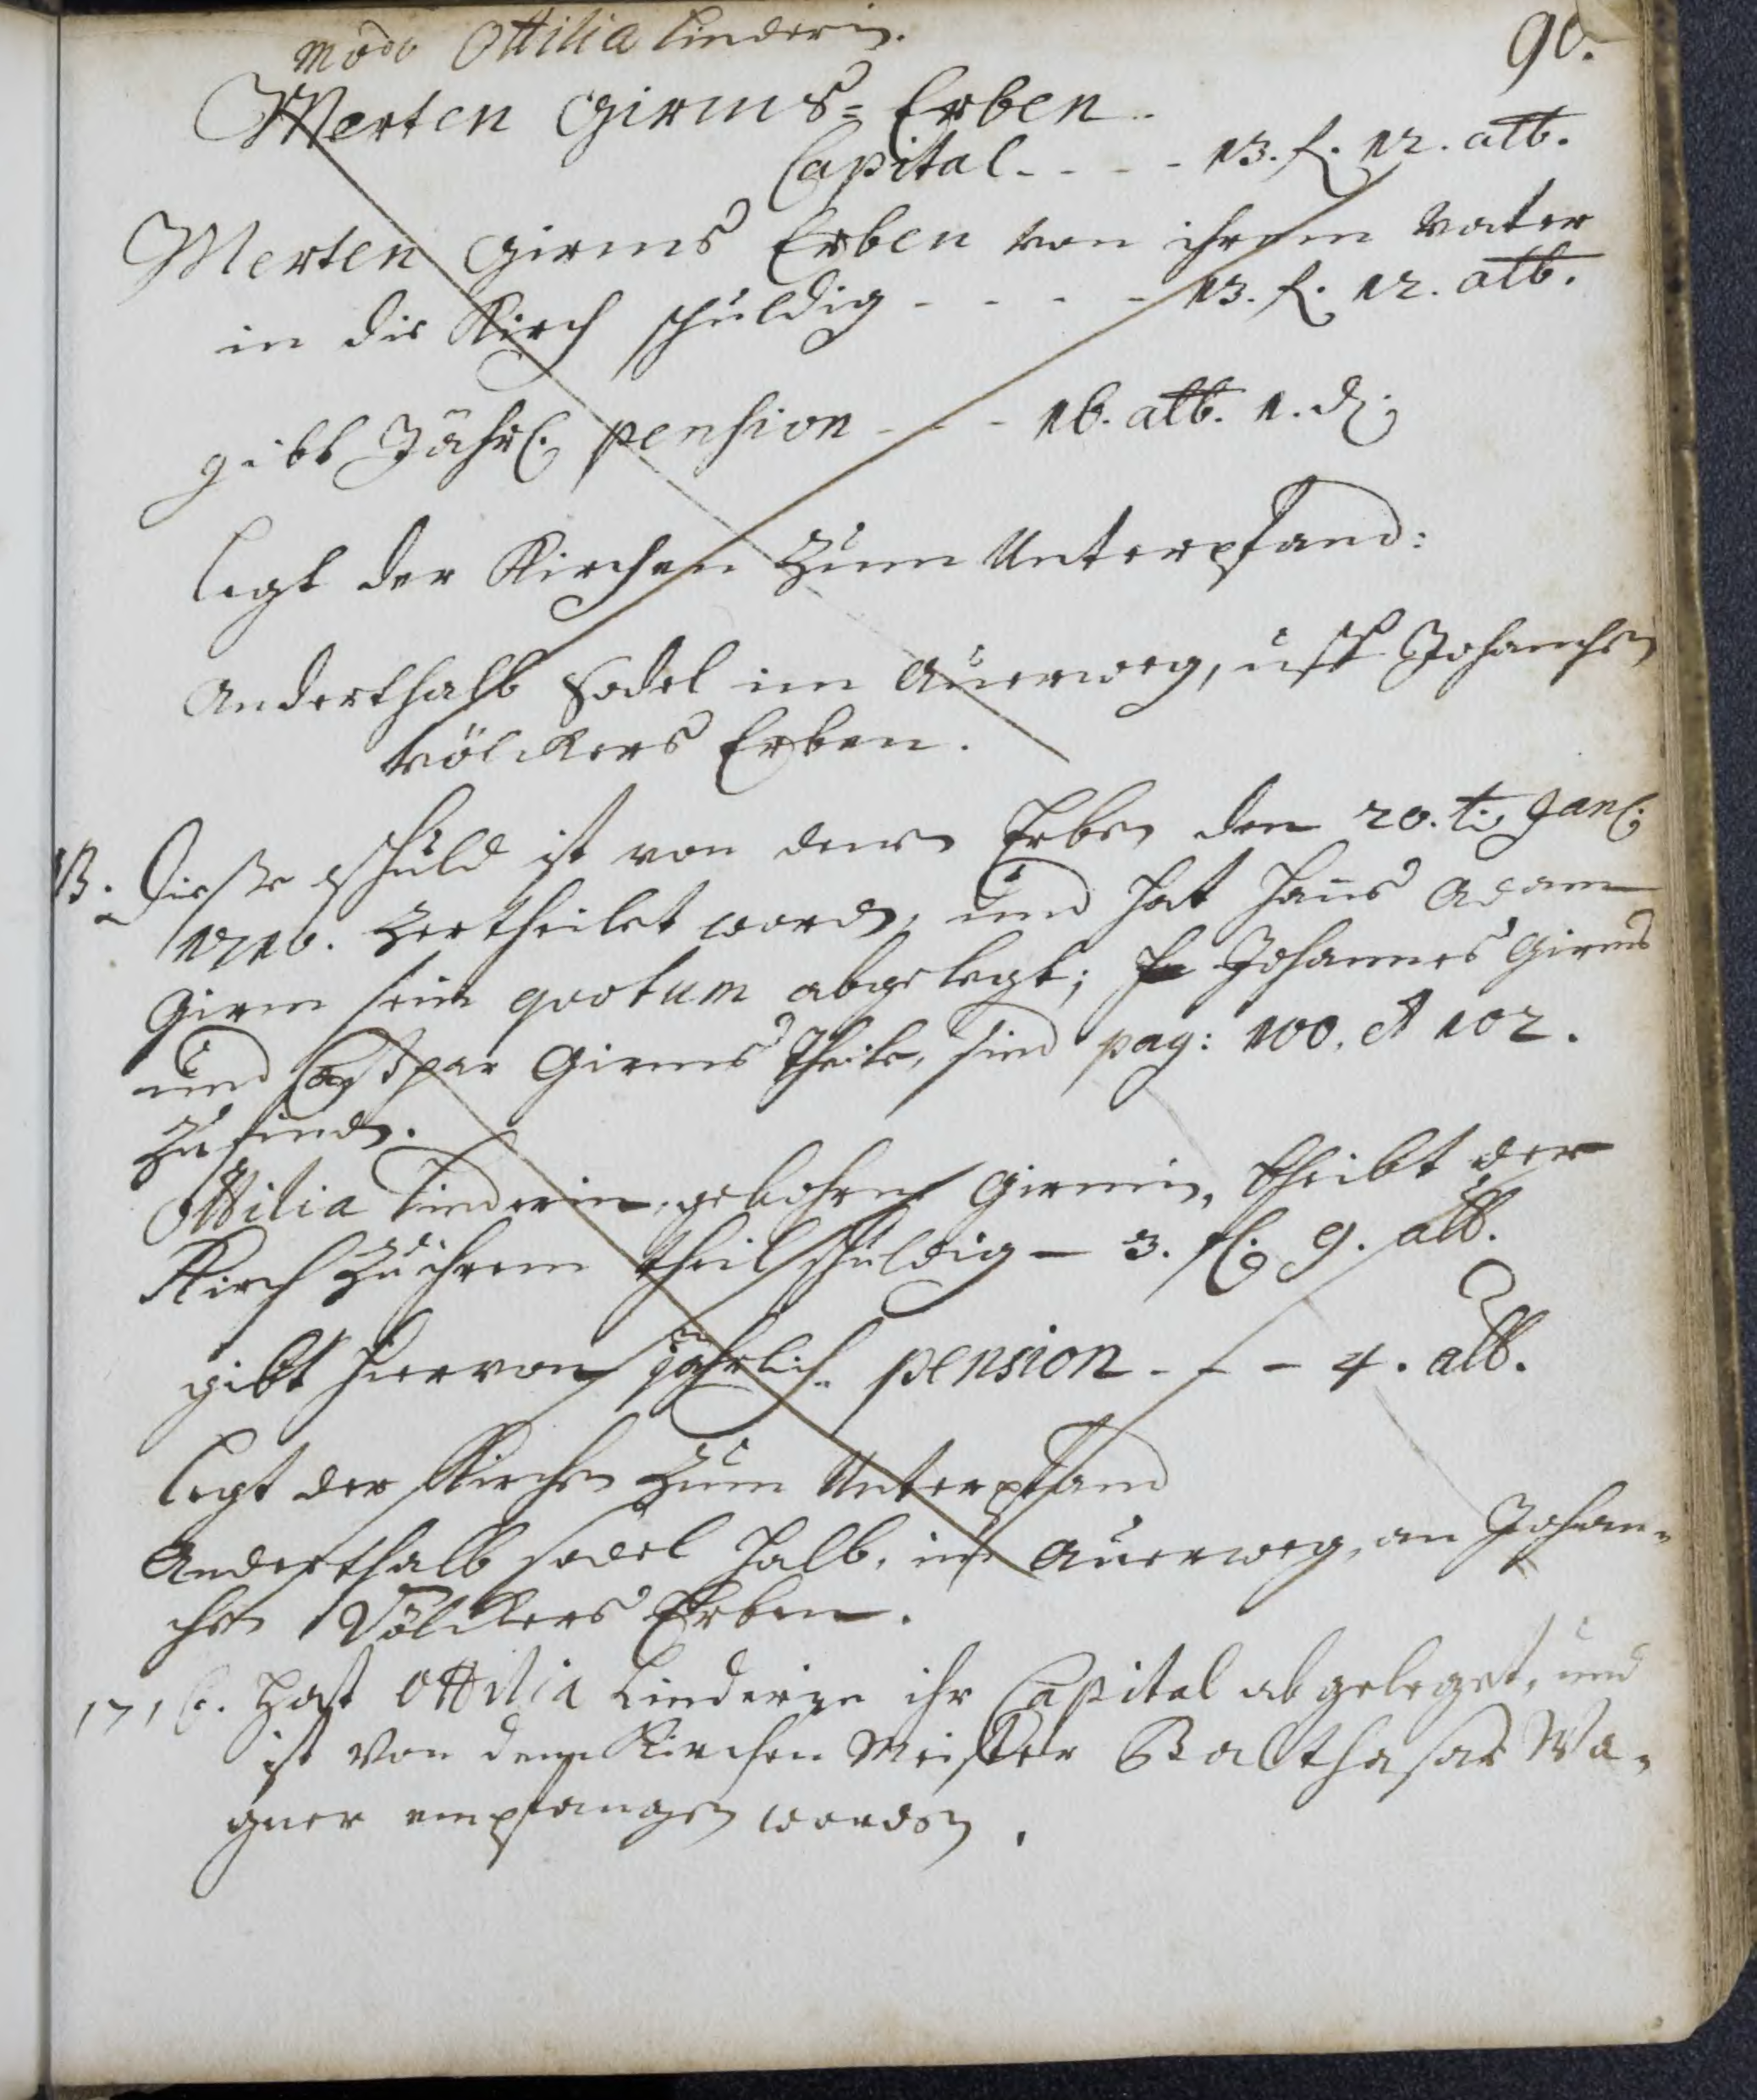 modo Ottilia Linderin.
90.
Merten Girms=Erben.
Capital - - - - 13. f. 12. alb.
Merten Girms Erben von ihrem Vater
in die Kirch schuldig - - - - 13. f. 12. alb.
gibt Jährl. pension - - - 16. alb. 1. d.
legt der Kirchen zum Unterpfand:
Anderthalb Sodel im Auerweg, uff Johanchen
Völckers Erben.
NB. Diesse schuld ist von denen Erben den 20.t. Jan.
1716. zertheilet worden, und hat Hans Adam
Girm sein quotum abgelegt; Johannes Girms
und Caspar Girms Theile, sind pag: 100. et 102.
zu finden.
Ottilia Linderin, gebohrne Girmin, bleibt der
Kirch zu ihrem theil schuldig — 3. fl. 9. alb.
gibt hiervon jährlich pension - - - 4. alb.
legt der Kirchen zum Unterpfand
Anderthalb sodel halb, im Auerweg, an Johan-
chen Völckers Erben.
1716. Hatt Ottilia Linderin ihr Capital abgeleget, und
ist von dem Kirchen Meister Balthasar Wa-
gner empfangen worden.